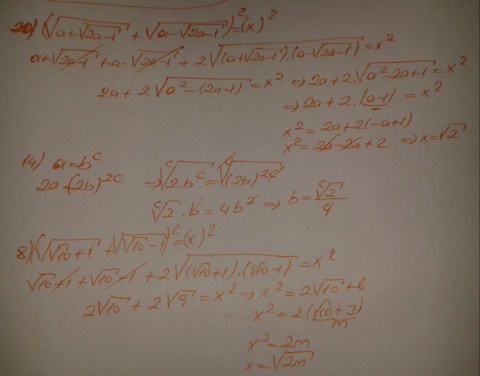 20) (√(a+√(2a-1)) + √(a-√(2a-1)))² = (x)²
a+√(2a-1) + a-√(2a-1) + 2√((a+√(2a-1)).(a-√(2a-1))) = x²
2a + 2√(a²-(2a-1)) = x² ⇒ 2a+2√(a²-2a+1) = x²
⇒ 2a+2.|a-1| = x²
x² = 2a+2(-a+1)
x² = 2a-2a+2 ⇒ x=√2
14) a=b^c
2a=(2b)^(2c) ⇒ ᶜ√(2.b^c) = ᶜ√((2b)^(2c))
ᶜ√2 . b = 4b² ⇒ b = ᶜ√2/4
8) (√(√10+1) + √(√10-1))² = (x)²
√10+1+√10-1 + 2√((√10+1).(√10-1)) = x²
2√10 + 2√9 = x² → x² = 2√10+6
x² = 2(√10+3)
m
x² = 2m
x = √(2m)